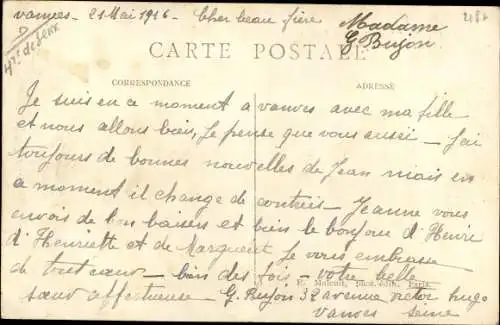 vanves - 21 Mai 1916 - Cher beau frère
Madame
G Bujon
2187
CARTE POSTALE
CORRESPONDANCE
ADRESSE
Je suis en ce moment a vanves avec ma fille
et nous allons bien, Je pense que vous aussi - J'ai
toujours de bonnes nouvelles de Jean mais en
ce moment il change de contrées - Jeanne vous
envois de bon baisers et bien le bonjour d'Henri
d'Henriette et de Marguerit Je vous embrasse
de tout cœur - bien des fois - votre belle
E. Malcuit, phot. édit. Paris.
sœur affectueuse - G. Bujon 32 avenue victor hugo
vanves seine